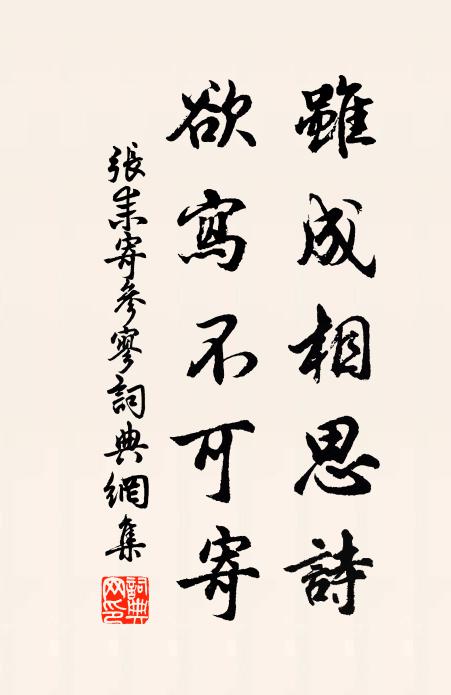 雖成相思詩
欲寫不可寄
張耒寄參寥詞典網集
詞典网印